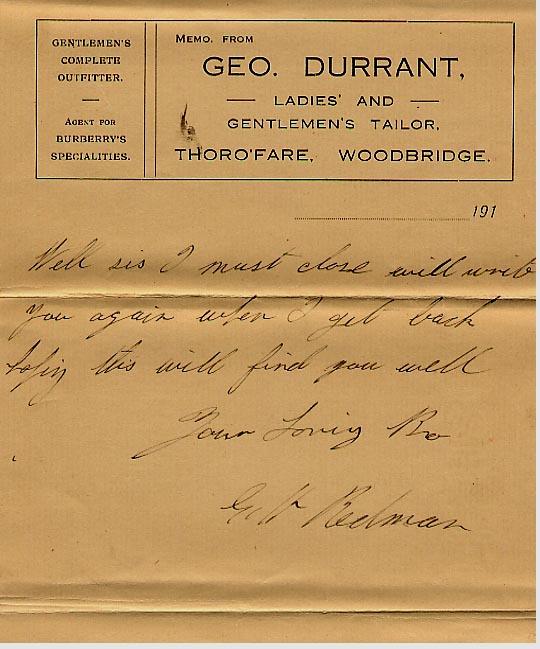 GENTLEMEN'S
COMPLETE
OUTFITTER.
AGENT FOR
BURBERRY'S
SPECIALITIES.
MEMO. FROM
GEO. DURRANT,
LADIES' AND
GENTLEMEN'S TAILOR,
THORO'FARE, WOODBRIDGE.
191
Well sis I must close will write
you again when I get back
hopig this will find you well
Your Loving Bro
Redman